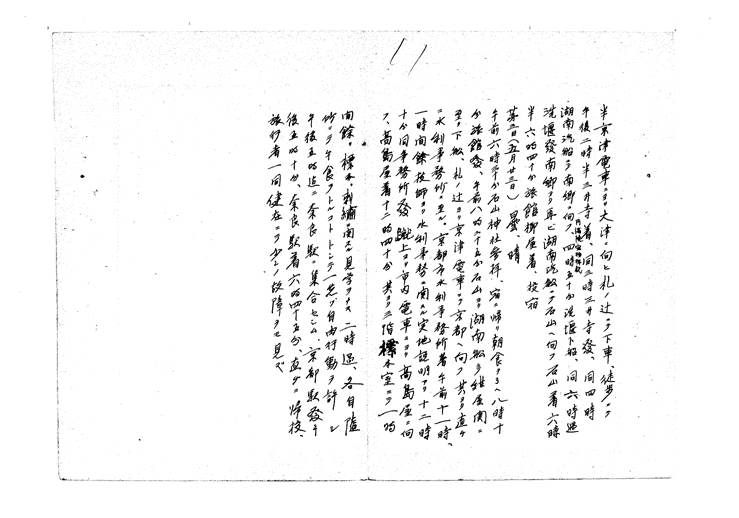 半京津電車ニヨリ大津ニ向ヒ札ノ辻ニテ下車、徒歩ニテ
午後二時半三井寺着、同三時三井寺発、同四時
湖南汽船ヲ南郷ニ向フ、四時五十分洗堰下船 同六時過
洗堰発南郷ヨリ再ビ湖南汽船ニテ石山ヘ向フ 石山着六時
半 六時四十分旅館柳屋着、投宿
第二日(五月廿三日) 曇、晴
午前六時半ヨリ石山神社参拝、宿ニ帰リ朝食ヲナシ八時十
分旅館発、午前八時二十五分石山ヨリ湖南船ヲ
至リ下船、札ノ辻ヨリ京津電車ニテ京都ヘ向フ 其ヨリ直ケ
ニ水利事務所ニ至ル、京都市水利事務所着午前十一時、
一時間余技師ヨリ水利事務ニ関スル実地説明アリ十二時
十分同事務所発 蹴上ヨリ市内電車ニヨリ高島屋ニ向
フ、高島屋着十二時四十分 其ヨリ三階標本室ニテ一時
間余、標本、刺繍ニ関スル見学ヲナス 二時過、各自随
所ニテ午食ヲトルコトトシテ一先ヅ自由行動ヲ許シ
午後五時迄ニ奈良駅ニ集合セシム、京都駅発午
後五時十分、奈良駅着六時四十五分、直チニ帰校、
旅行者一同健在ニテ少シノ故障ヲモ見ズ